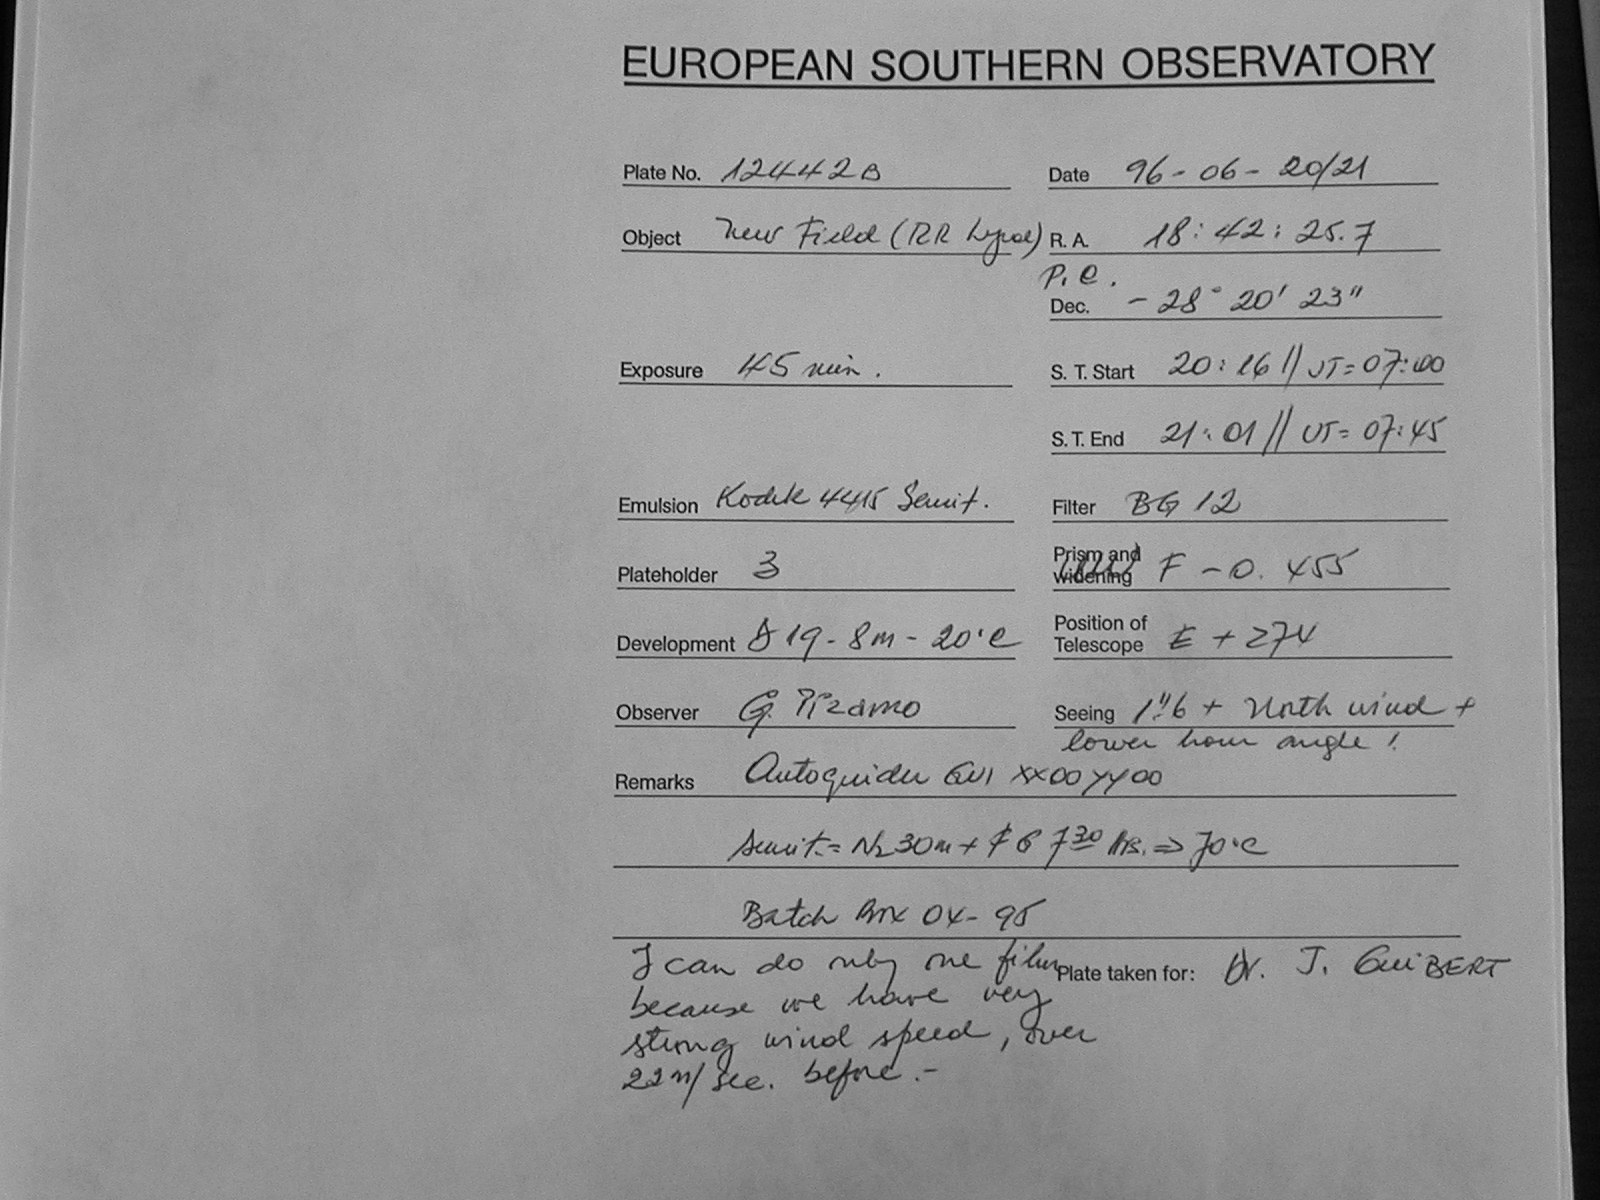 EUROPEAN SOUTHERN OBSERVATORY
Plate No. 12442B Date 96-06-20/21
Object New Field (RR Lyrae) R. A. 18:42:25.7
Dec. -28° 20' 23"
Exposure 45 min. S. T. Start 20:16 // UT=07:00
S. T. End 21:01 // UT=07:45
Emulsion Kodak 4415 Sensit. Filter BG 12
Plateholder 3 Prism and widening F -0.455
Development D19-8m-20°C Position of Telescope E +274
Observer G. Pizarro Seeing 1"6 + North wind +
lower hour angle!
Remarks Autoguider XX00YY00
Sensit.= N2 30m + 7 30 hrs. => 70°C
Batch 04-95
I can do only one film Plate taken for: Dr. J. GUIBERT
because we have very
strong wind speed, over
22m/sec. before.-